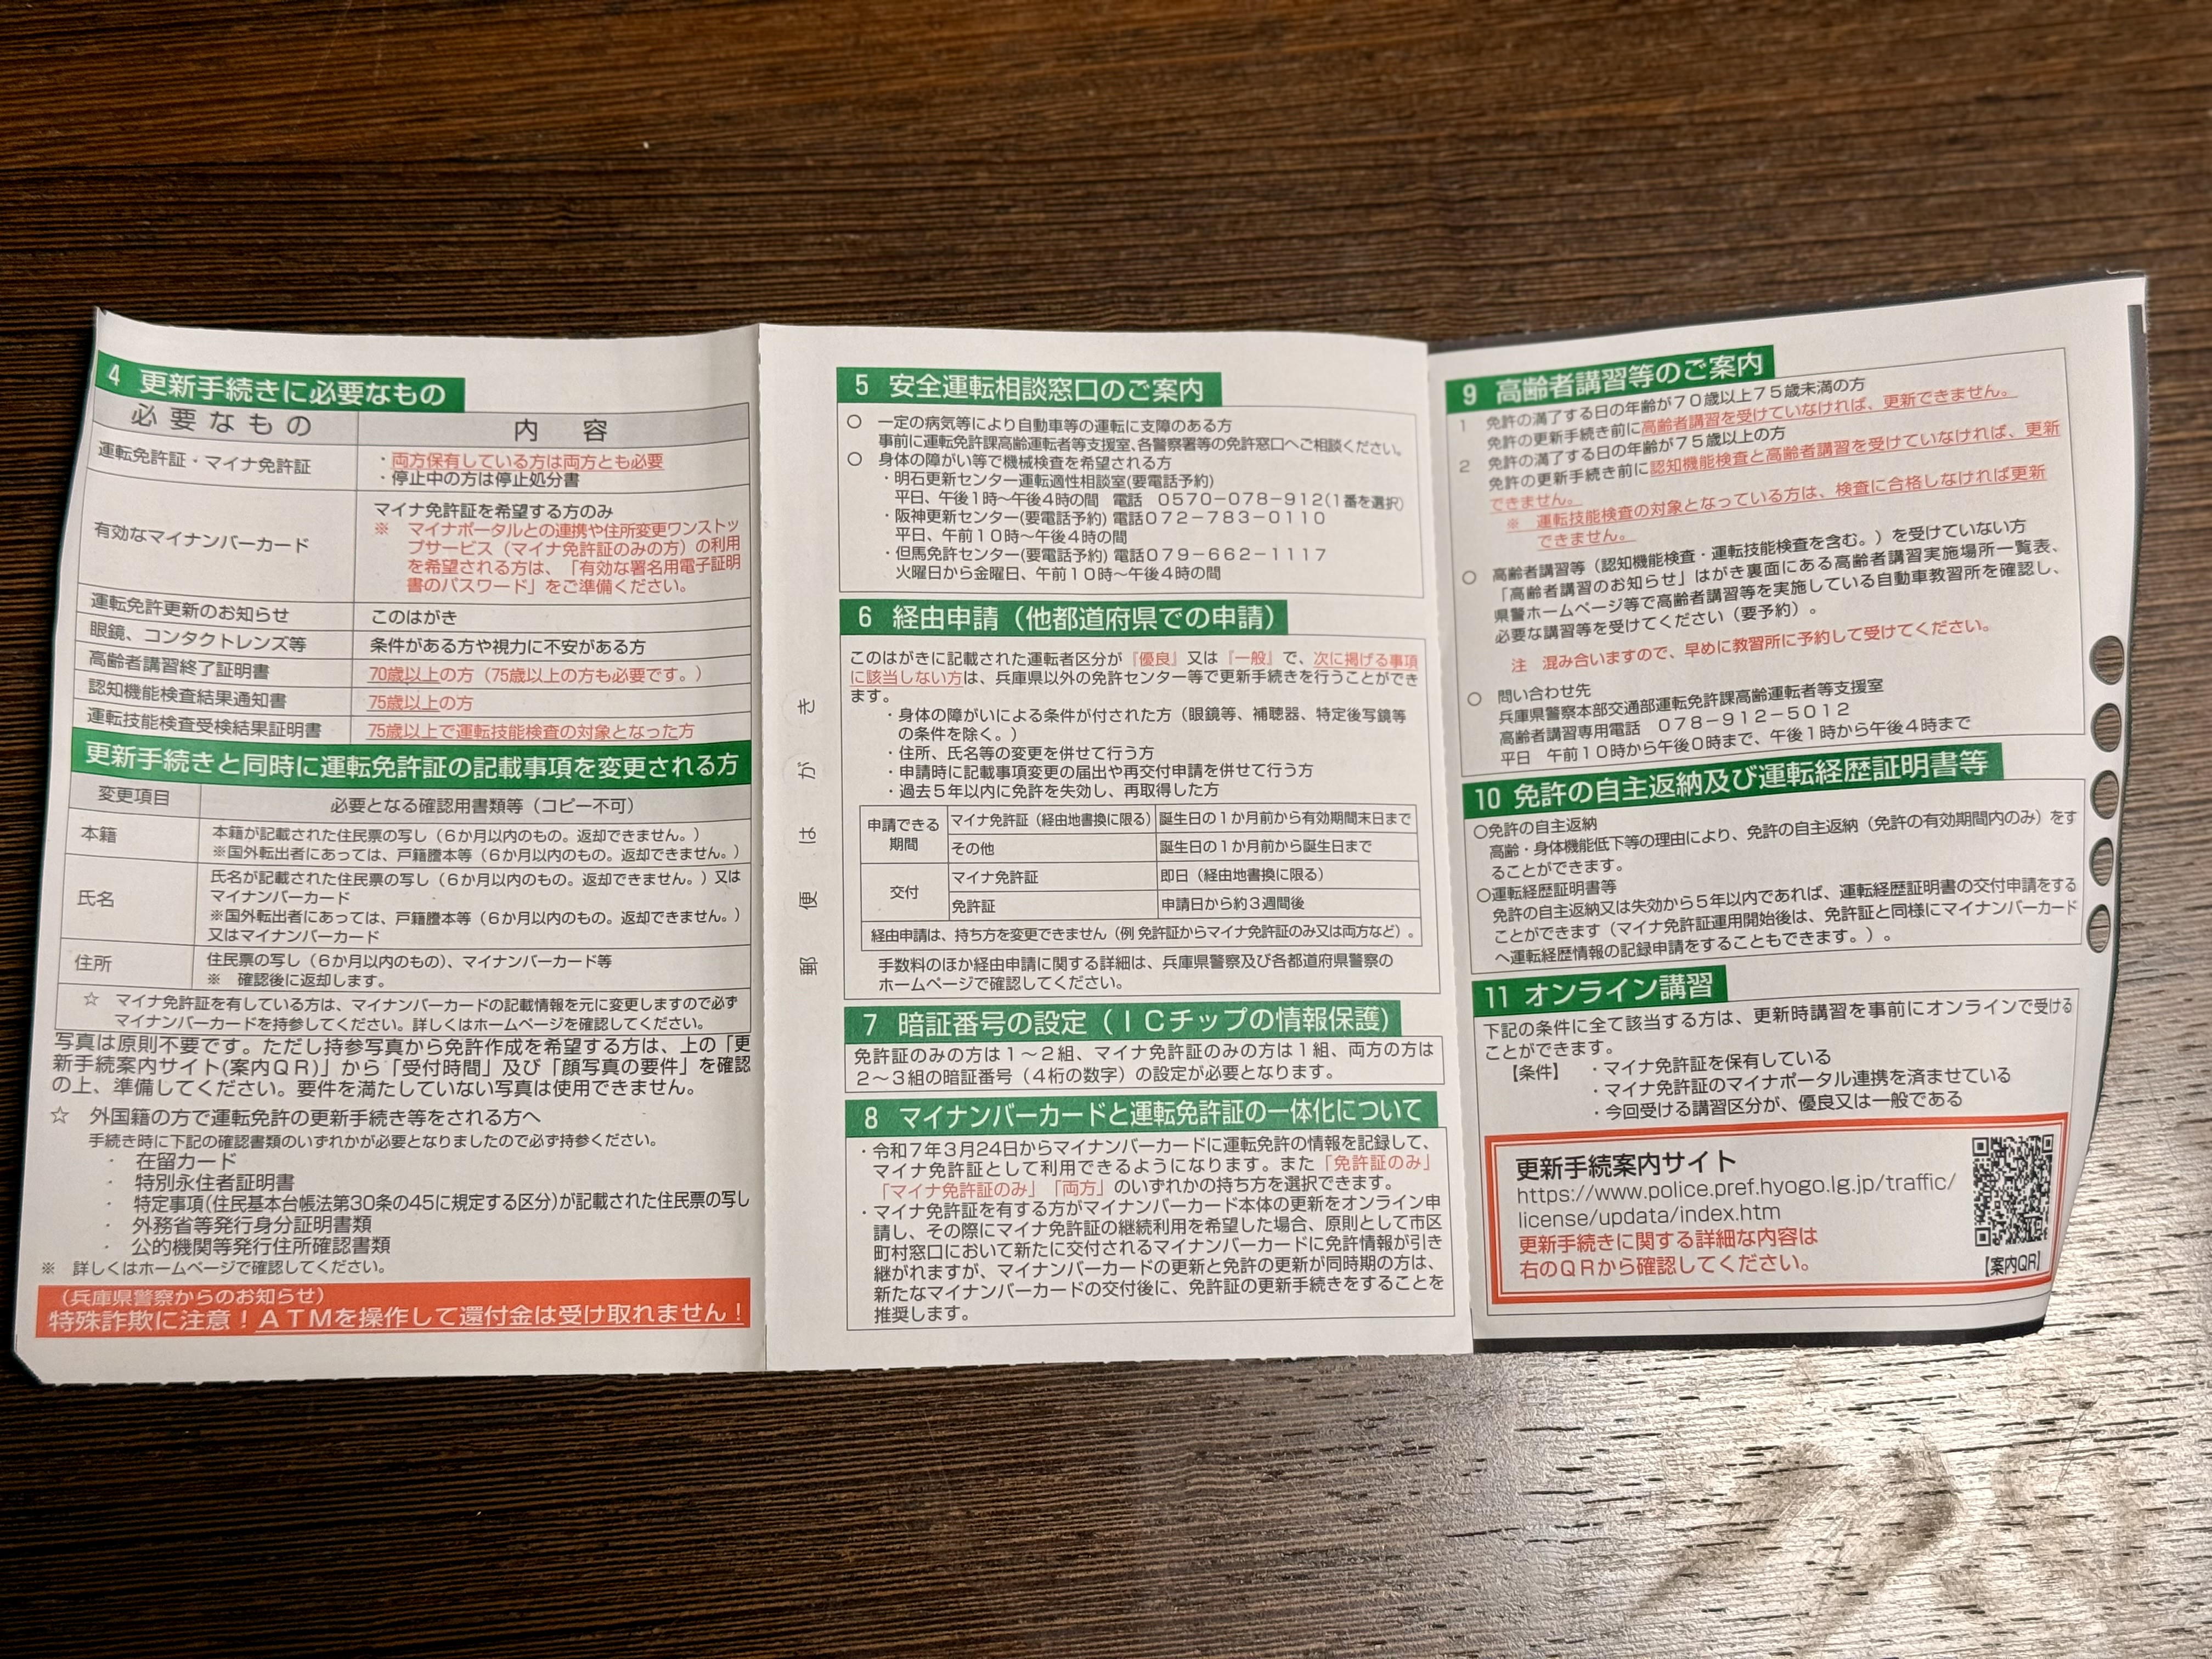 4 更新手続きに必要なもの
必要なもの 内容
運転免許証・マイナ免許証
・両方保有している方は両方とも必要
・停止中の方は停止処分書
有効なマイナンバーカード
マイナ免許証を希望する方のみ
※ マイナポータルとの連携や住所変更ワンストッ
プサービス（マイナ免許証のみの方）の利用
を希望される方は、「有効な署名用電子証明
書のパスワード」をご準備ください。
運転免許更新のお知らせ このはがき
眼鏡、コンタクトレンズ等 条件がある方や視力に不安がある方
高齢者講習終了証明書 70歳以上の方（75歳以上の方も必要です。）
認知機能検査結果通知書 75歳以上の方
運転技能検査受検結果証明書 75歳以上で運転技能検査の対象となった方
更新手続きと同時に運転免許証の記載事項を変更される方
変更項目 必要となる確認用書類等（コピー不可）
本籍
本籍が記載された住民票の写し（６か月以内のもの。返却できません。）
※国外転出者にあっては、戸籍謄本等（６か月以内のもの。返却できません。）
氏名
氏名が記載された住民票の写し（６か月以内のもの。返却できません。）又は
マイナンバーカード
※国外転出者にあっては、戸籍謄本等（６か月以内のもの。返却できません。）
又はマイナンバーカード
住所
住民票の写し（６か月以内のもの）、マイナンバーカード等
※ 確認後に返却します。
☆ マイナ免許証を有している方は、マイナンバーカードの記載情報を元に変更しますので必ず
マイナンバーカードを持参してください。詳しくはホームページを確認してください。
写真は原則不要です。ただし持参写真から免許作成を希望する方は、上の「更
新手続案内サイト(案内ＱＲ)」から「受付時間」及び「顔写真の要件」を確認
の上、準備してください。要件を満たしていない写真は使用できません。
☆ 外国籍の方で運転免許の更新手続き等をされる方へ
手続き時に下記の確認書類のいずれかが必要となりましたので必ず持参ください。
・ 在留カード
・ 特別永住者証明書
・ 特定事項(住民基本台帳法第30条の45に規定する区分)が記載された住民票の写し
・ 外務省等発行身分証明書類
・ 公的機関等発行住所確認書類
※ 詳しくはホームページで確認してください。
（兵庫県警察からのお知らせ）
特殊詐欺に注意！ＡＴＭを操作して還付金は受け取れません！
郵便はがき
5 安全運転相談窓口のご案内
○ 一定の病気等により自動車等の運転に支障のある方
事前に運転免許課高齢運転者等支援室、各警察署等の免許窓口へご相談ください。
○ 身体の障がい等で機械検査を希望される方
・明石更新センター運転適性相談室(要電話予約)
平日、午後１時～午後４時の間 電話 ０５７０－０７８－９１２(１番を選択)
・阪神更新センター(要電話予約) 電話０７２－７８３－０１１０
平日、午前１０時～午後４時の間
・但馬免許センター(要電話予約) 電話０７９－６６２－１１１７
火曜日から金曜日、午前１０時～午後４時の間
6 経由申請（他都道府県での申請）
このはがきに記載された運転者区分が『優良』又は『一般』で、次に掲げる事項
に該当しない方は、兵庫県以外の免許センター等で更新手続きを行うことができ
ます。
・身体の障がいによる条件が付された方（眼鏡等、補聴器、特定後写鏡等
の条件を除く。）
・住所、氏名等の変更を併せて行う方
・申請時に記載事項変更の届出や再交付申請を併せて行う方
・過去５年以内に免許を失効し、再取得した方
申請できる期間
マイナ免許証（経由地書換に限る） 誕生日の１か月前から有効期間末日まで
その他 誕生日の１か月前から誕生日まで
交付
マイナ免許証 即日（経由地書換に限る）
免許証 申請日から約３週間後
経由申請は、持ち方を変更できません（例 免許証からマイナ免許証のみ又は両方など）。
手数料のほか経由申請に関する詳細は、兵庫県警察及び各都道府県警察の
ホームページで確認してください。
7 暗証番号の設定（ＩＣチップの情報保護）
免許証のみの方は１～２組、マイナ免許証のみの方は１組、両方の方は
２～３組の暗証番号（４桁の数字）の設定が必要となります。
8 マイナンバーカードと運転免許証の一体化について
・令和７年３月24日からマイナンバーカードに運転免許の情報を記録して、
マイナ免許証として利用できるようになります。また「免許証のみ」
「マイナ免許証のみ」「両方」のいずれかの持ち方を選択できます。
・マイナ免許証を有する方がマイナンバーカード本体の更新をオンライン申
請し、その際にマイナ免許証の継続利用を希望した場合、原則として市区
町村窓口において新たに交付されるマイナンバーカードに免許情報が引き
継がれますが、マイナンバーカードの更新と免許の更新が同時期の方は、
新たなマイナンバーカードの交付後に、免許証の更新手続きをすることを
推奨します。
9 高齢者講習等のご案内
1 免許の満了する日の年齢が７０歳以上７５歳未満の方
免許の更新手続き前に高齢者講習を受けていなければ、更新できません。
2 免許の満了する日の年齢が７５歳以上の方
免許の更新手続き前に認知機能検査と高齢者講習を受けていなければ、更新
できません。
※ 運転技能検査の対象となっている方は、検査に合格しなければ更新
できません。
○ 高齢者講習等（認知機能検査・運転技能検査を含む。）を受けていない方
「高齢者講習のお知らせ」はがき裏面にある高齢者講習実施場所一覧表、
県警ホームページ等で高齢者講習等を実施している自動車教習所を確認し、
必要な講習等を受けてください（要予約）。
注 混み合いますので、早めに教習所に予約して受けてください。
○ 問い合わせ先
兵庫県警察本部交通部運転免許課高齢運転者等支援室
高齢者講習専用電話 ０７８－９１２－５０１２
平日 午前１０時から午後０時まで、午後１時から午後４時まで
10 免許の自主返納及び運転経歴証明書等
○免許の自主返納
高齢・身体機能低下等の理由により、免許の自主返納（免許の有効期間内のみ）をす
ることができます。
○運転経歴証明書等
免許の自主返納又は失効から５年以内であれば、運転経歴証明書の交付申請をする
ことができます（マイナ免許証運用開始後は、免許証と同様にマイナンバーカード
へ運転経歴情報の記録申請をすることもできます。）。
11 オンライン講習
下記の条件に全て該当する方は、更新時講習を事前にオンラインで受ける
ことができます。
【条件】 ・マイナ免許証を保有している
・マイナ免許証のマイナポータル連携を済ませている
・今回受ける講習区分が、優良又は一般である
更新手続案内サイト
https://www.police.pref.hyogo.lg.jp/traffic/
license/updata/index.htm
更新手続きに関する詳細な内容は
右のＱＲから確認してください。
【案内QR】